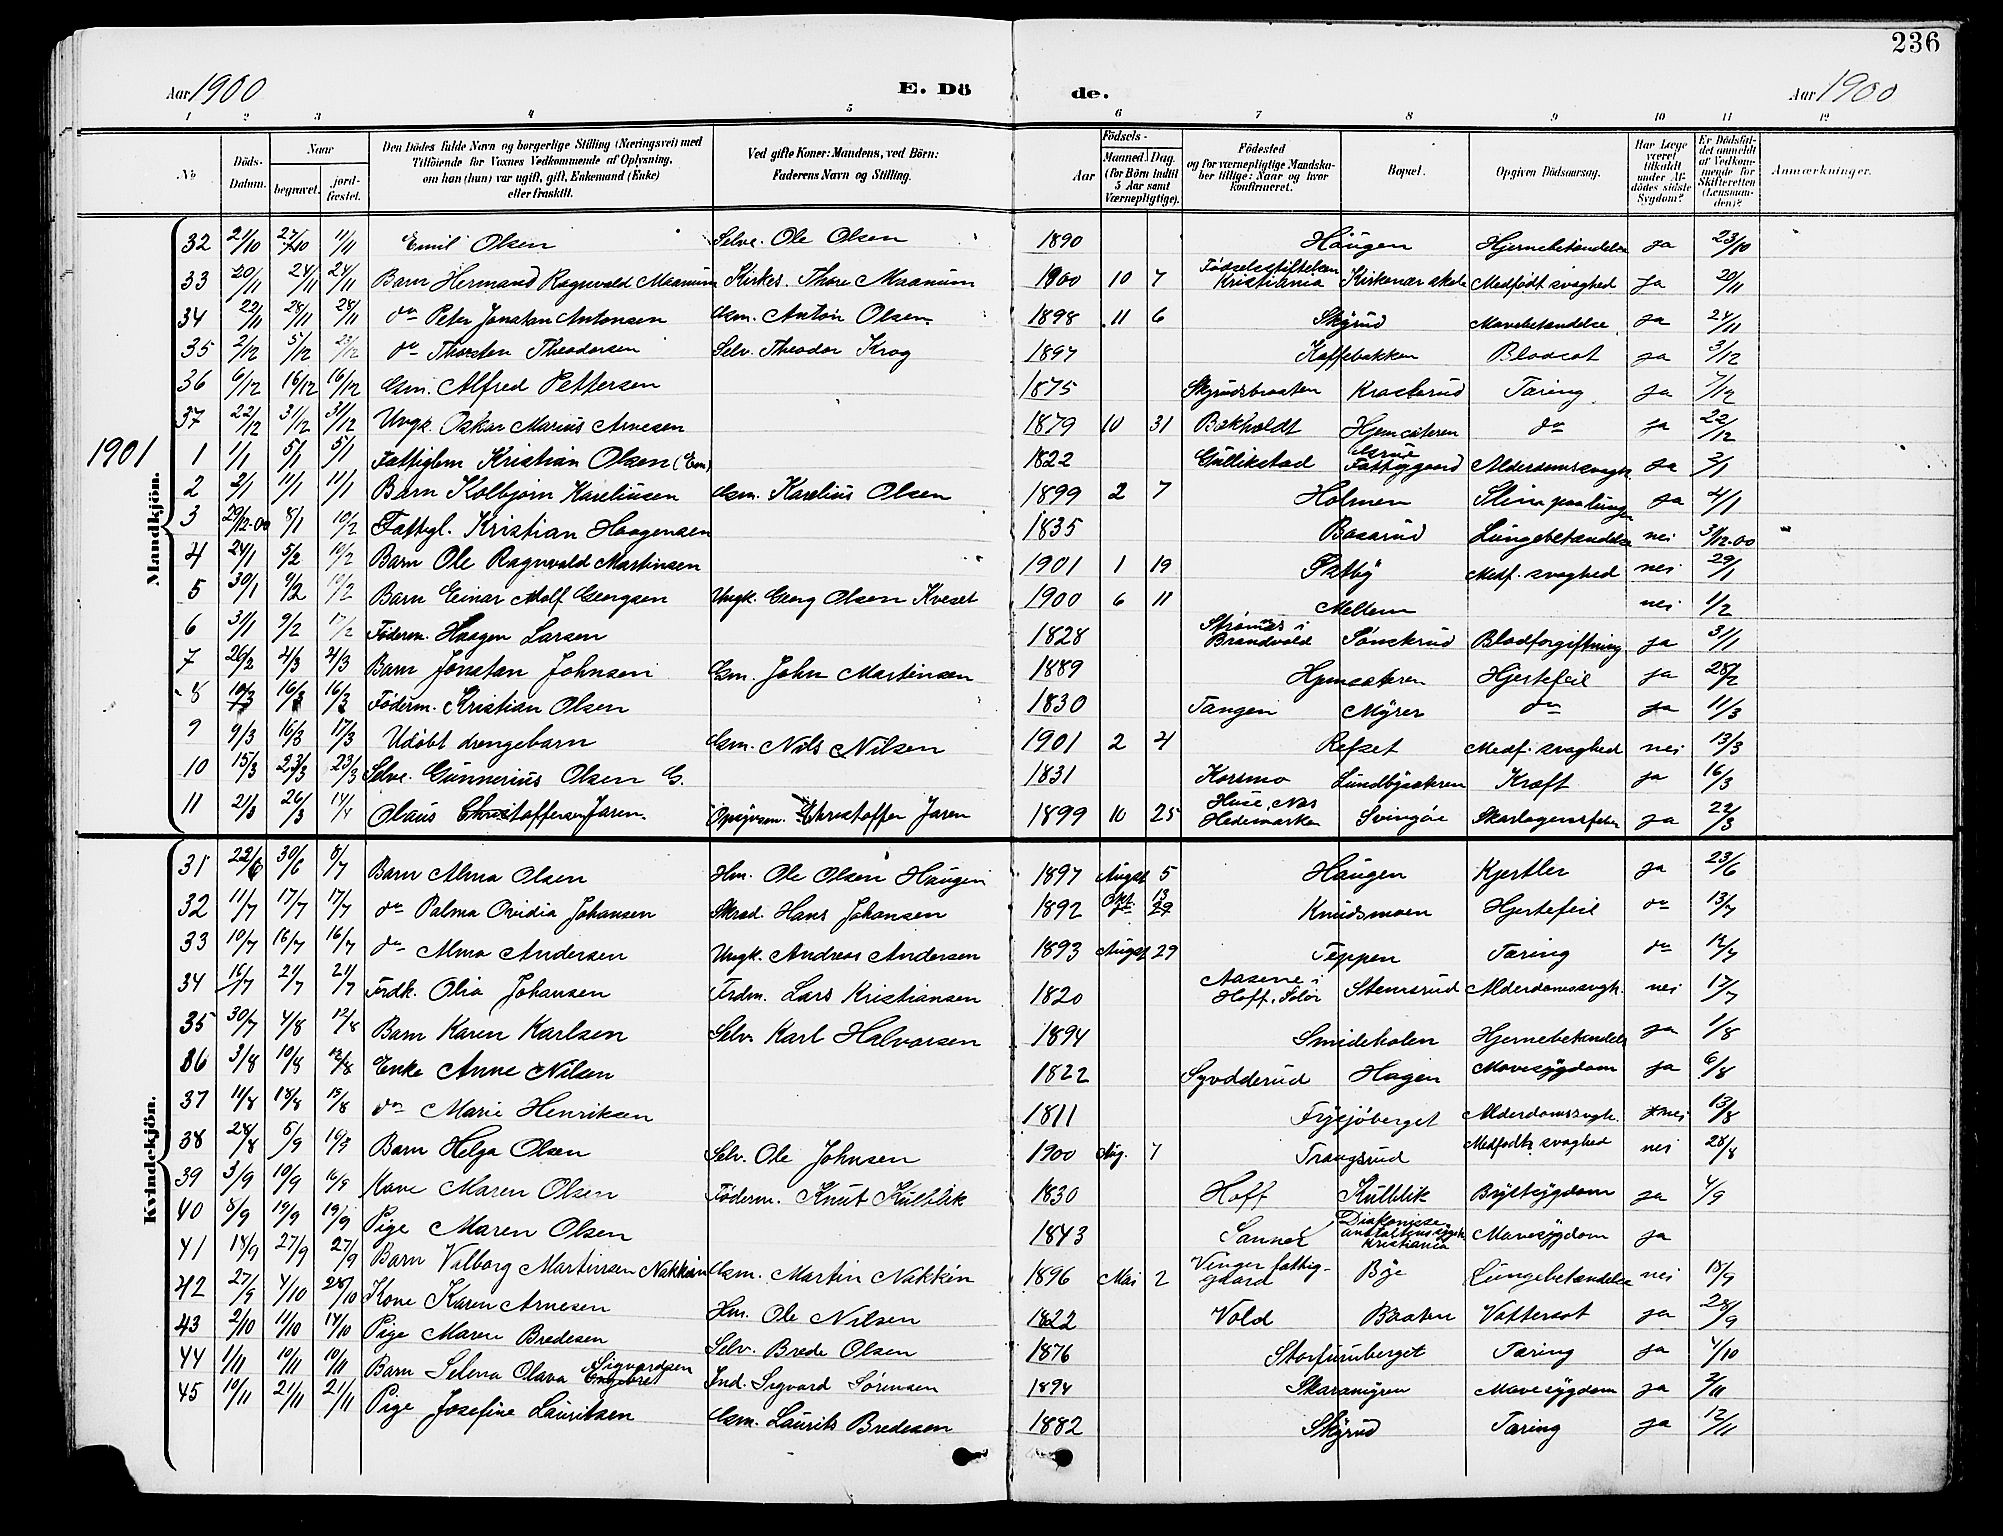 236
Aar 1900 E. Dö de. Aar 1900
1 2 3 4 5 6 7 8 9 10 11 12
No Döds-Datum. Naar begravet. jordfæstet. Den Dödes fulde Navn og borgerlige Stilling (Næringsvei) med Tilföiende for Voxnes Vedkommende af Oplysning, om han (hun) var ugift, gift, Enkemand (Enke) eller fraskilt. Ved gifte Koner: Mandens, ved Börn: Faderens Navn og Stilling. Födsels- Aar Maaned. Dag. (for Börn indtil 5 Aar samt Værnepligtige). Födested og for værnepligtige Mandskaber tillige: Naar og hvor konfirmeret. Bopæl. Opgiven Dödsaarsag. Har Læge været tilkaldt under Afdödes sidste Sygdom? Er Dödsfaldet anmeldt af Vedkommende for Skifteretten (Lensmanden)? Anmærkninger.
Mandkjön.
32 21/10 27/10 1/11 Emil Olsen Selve. Ole Olsen 1890 Haugen Hjernebetændelse ja 23/10
33 20/11 24/11 24/11 Barn Hermand Ragnvald Maanum Kirkes. Thore Maanum 1900 10 7 Födselsstiftelsen Kristiania Kirkenær skole Medfødt svaghed ja 20/11
34 22/11 28/11 28/11 do Peter Jonatan Antonsen Gsm. Anton Olsen 1898 11 6 Skyrud Mavebetændelse ja 24/11
35 2/12 5/12 29/12 do Thorsten Theodorsen Selv. Theodor Krog 1897 Kaffebakken Blodcot ja 3/12
36 6/12 16/12 16/12 Gsm. Alfred Pettersen 1875 Skyrudsbraaten Krocterud Tæring ja 7/12
37 22/12 31/12 31/12 Ungk. Oskar Marius Arnesen 1879 10 31 Bekholdt Hjemsæteren do ja 22/12
1901 1 1/1 5/1 5/1 Fattiglem Kristian Olsen (Em) 1822 Gullikstad Fattiggaard Alderdomssvagh. ja 2/1
2 2/1 11/1 11/1 Barn Kolbjørn Kareliusen Gsm. Karelius Olsen 1899 2 7 Holmen Slim paa lungen ja 4/1
3 29/12-00 8/1 10/2 Fattigl. Kristian Haagensen 1835 Baasrud Lungebetændelse nei 31/12-00
4 24/1 5/2 10/2 Barn Ole Ragnvald Martinsen 1901 1 19 Sætby Medf. svaghed nei 29/1
5 30/1 9/2 10/2 Barn Einar Adolf Georgsen Ungk. Georg Olsen Kveset 1900 6 11 Mellem nei 1/2
6 31/1 9/2 17/2 Föderm. Haagen Larsen 1828 Strømnes i Brandvold Sønsterud Blodforgiftning ja 31/1
7 26/2 4/3 4/3 Barn Jonatan Johnsen Gsm. John Martinsen 1889 Hjemsæteren Hjertefeil ja 28/2
8 10/3 16/3 16/3 Föderm. Kristian Olsen 1830 Tangen Myrer do ja 11/3
9 9/3 16/3 17/3 Udøbt drengebarn Gsm. Nils Nilsen 1901 2 4 Refset Medf. svaghed nei 13/3
10 15/3 23/3 23/3 Selve. Gunnerius Olsen G. 1831 Korsmo Lundbysæteren Kræft ja 16/3
11 21/3 26/3 14/4 Olaus Christoffersen Jaren. Opsynsm. Christoffer Jaren 1899 10 25 Huse, Nes Hedemarken Svingøie Skarlagensfeber ja 22/3
Kvindekjön.
31 22/6 30/6 8/7 Barn Alma Olsen Hm. Ole Olsen Haugen 1897 August 5 Haugen Kjertler ja 23/6
32 11/7 17/7 17/7 do Palma Ovidia Johansen Skræd. Hans Johansen 1892 Knudsmoen Hjertefeil do 13/7
33 10/7 16/7 16/7 do Alma Andersen Ungk. Andreas Andersen 1893 August 29 Teppen Tæring do 12/7
34 16/7 21/7 21/7 Frdk. Olia Johansen Frdm. Lars Kristiansen 1820 Aaserne i Hoff, Solør Stemsrud Alderdomssvgh. nei 17/7
35 30/7 4/8 12/8 Barn Karen Karlsen Selv. Karl Halvorsen 1894 Smideholen Hjernebetændelse ja 1/8
36 3/8 10/8 12/8 Enke Anne Nilsen 1822 Syvdderud Hagen Mavesygdom ja 6/8
37 11/8 18/8 15/8 do Marie Henriksen 1811 Frysjøberget Alderdomssvgh. nei 13/8
38 28/8 5/9 16/9 Barn Helga Olsen Selv. Ole Johnsen 1900 Aug. 7 Trangsrud Medfødt svaghed nei 28/8
39 3/9 10/9 16/9 Kone Maren Olsen Föderm. Knut Kulblik 1830 Hoff Kulblik Brystsygdom ja 4/9
40 8/9 19/9 19/9 Pige Maren Olsen 1843 Sanner Diakonisseanstaltens sygeh. Kristiania Mavesygdom ja
41 14/9 27/9 27/9 Barn Valborg Martinsen Nakkën Gsm. Martin Nakkën 1896 Mai 2 Vinger fattiggaard Bye Lungebetændelse nei 15/9
42 27/9 4/10 28/10 Kone Karen Arnesen Hm. Ole Nilsen 1822 Vold Braaten Vattersot ja 28/9
43 2/10 11/10 14/10 Pige Maren Bredesen Selv. Brede Olsen 1876 Storfuruberget Tæring ja 4/10
44 1/11 10/11 10/11 Barn Selena Olava Engebret Sigvardsen Ind. Sigvard Sörensen 1894 Skaramyren Mavesygdom ja 2/11
45 10/11 21/11 21/11 Pige Josefine Lauritsen Gsm. Laurits Bredesen 1882 Skyrud Tæring ja 12/11